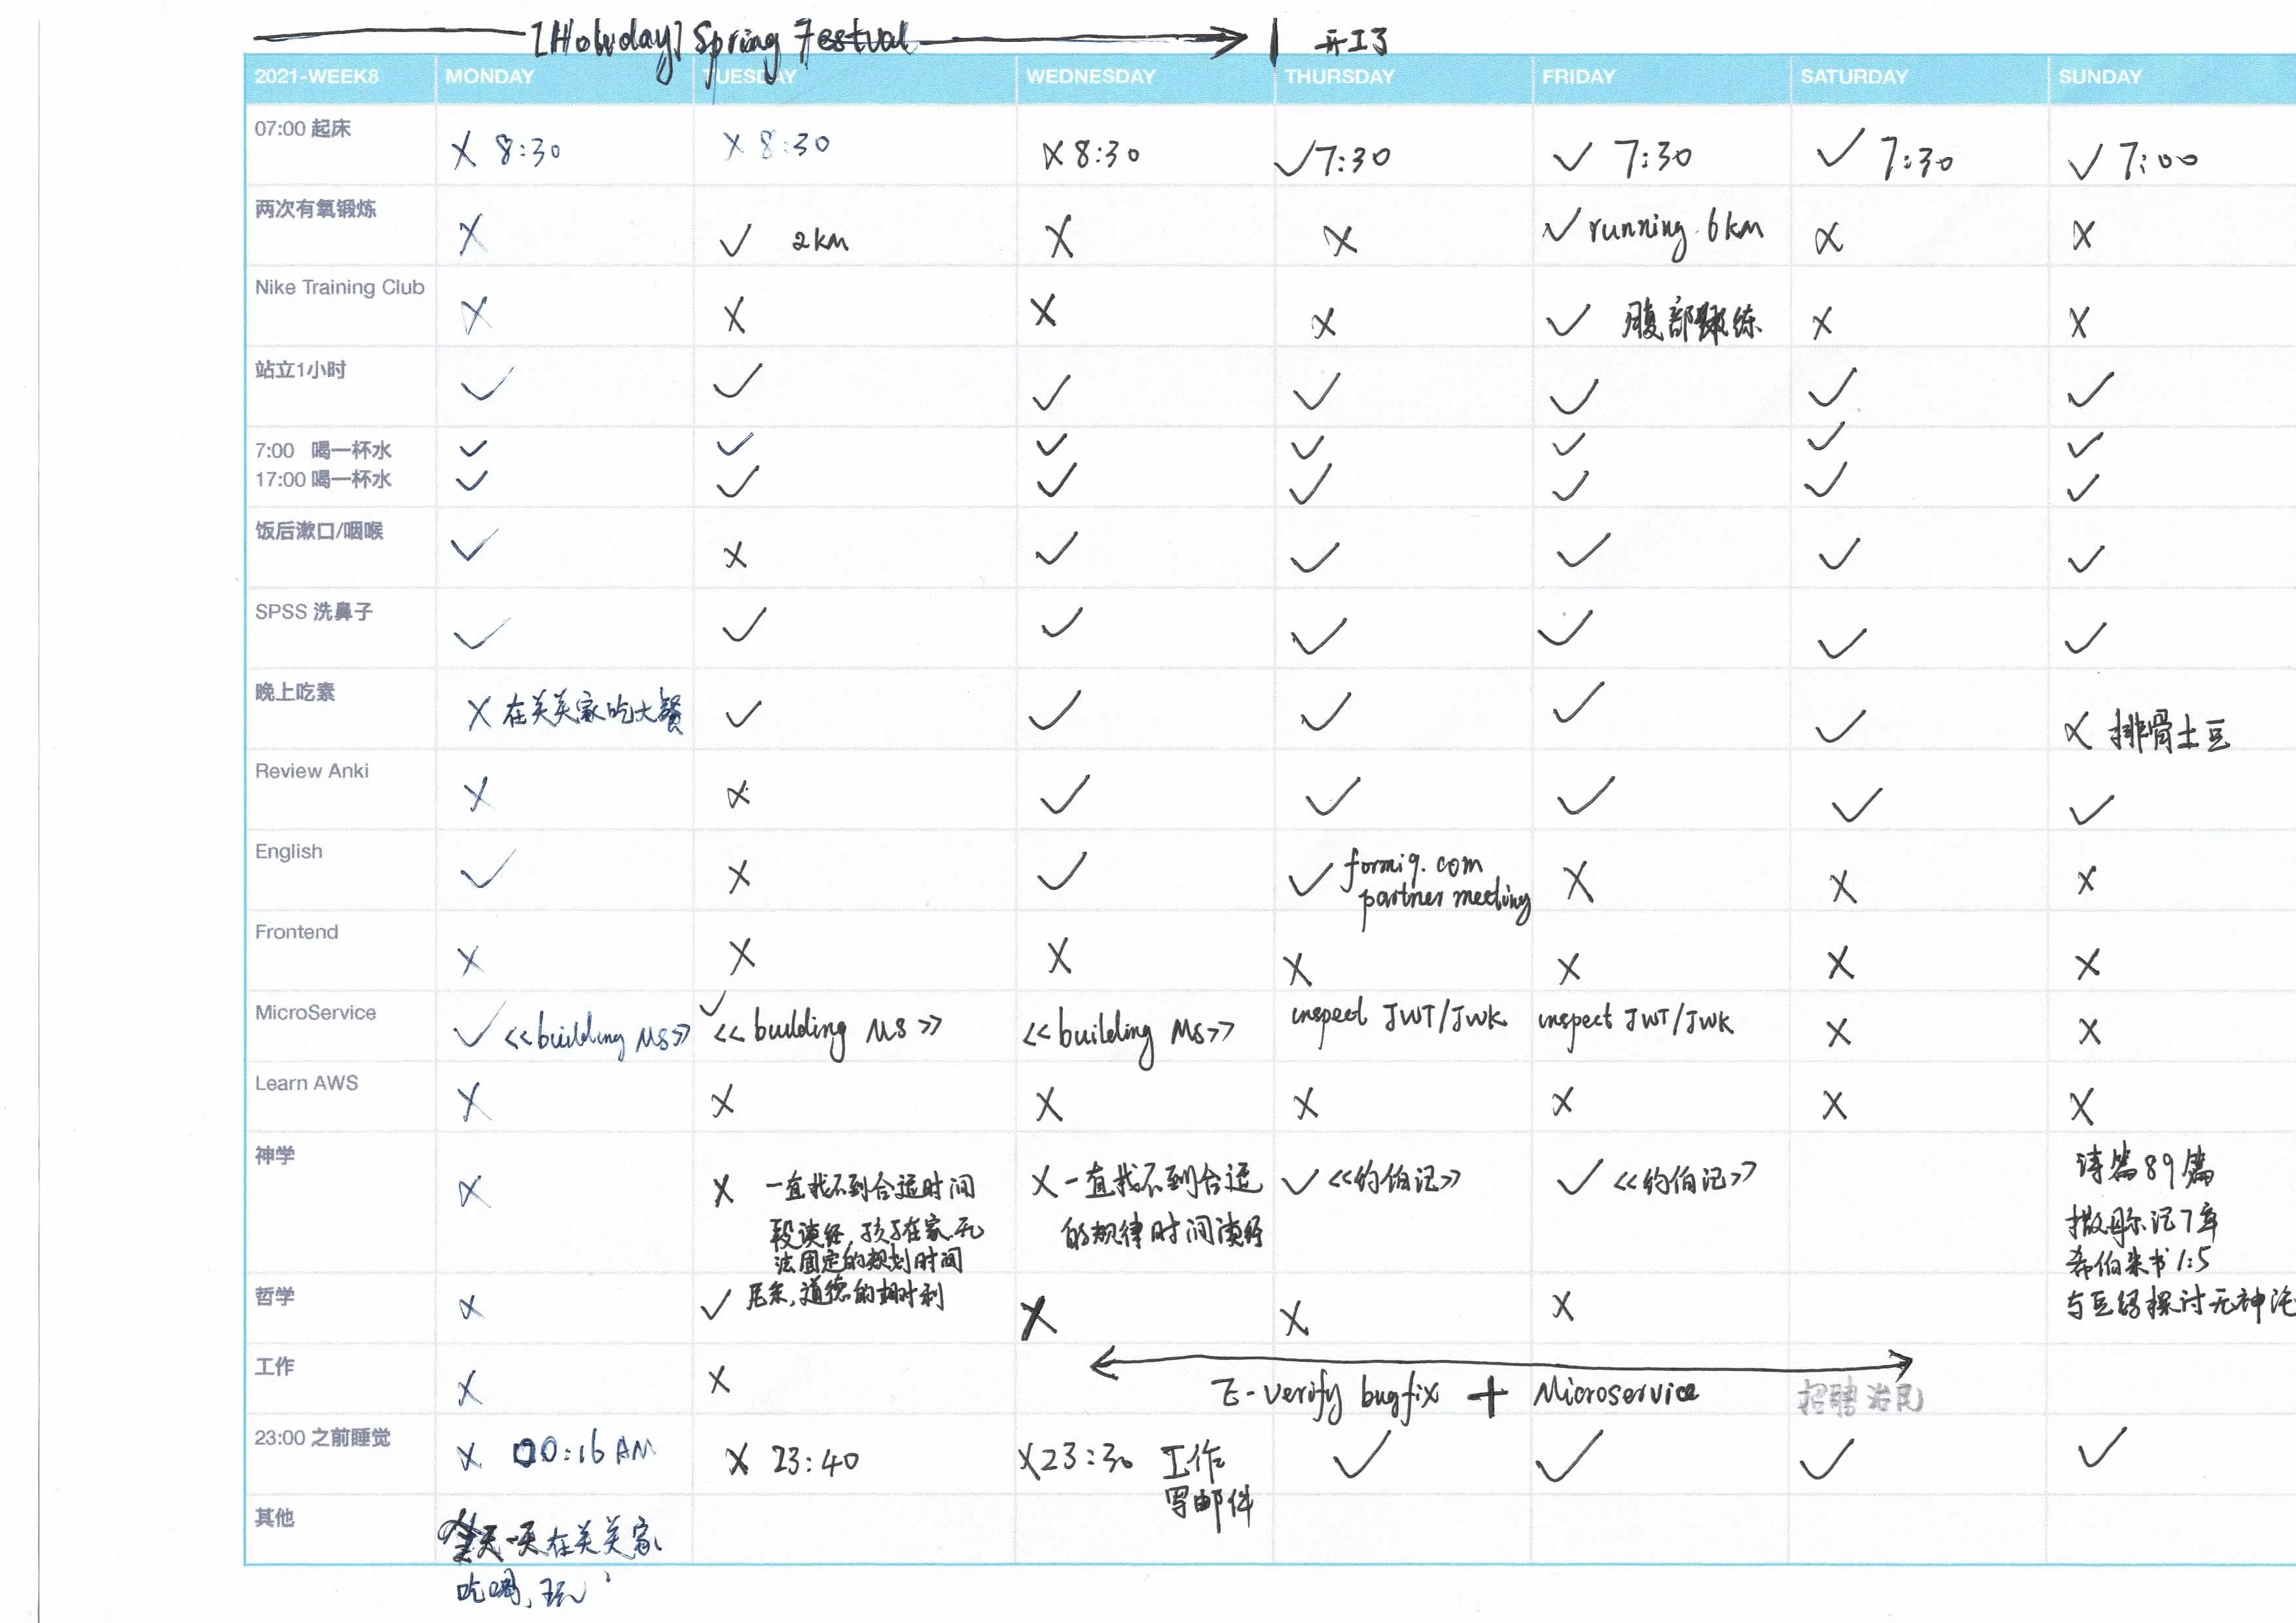 [Holiday] Spring Festval
开工了
2021-WEEK8 MONDAY TUESDAY WEDNESDAY THURSDAY FRIDAY SATURDAY SUNDAY
07:00 起床 ✗ 8:30 ✗ 8:30 ✗ 8:30 ✓ 7:30 ✓ 7:30 ✓ 7:30 ✓ 7:00
两次有氧锻炼 ✗ ✓ 2km ✗ ✗ ✓ running 6km ✗ ✗
Nike Training Club ✗ ✗ ✗ ✗ ✓ 腹部锻练 ✗ ✗
站立1小时 ✓ ✓ ✓ ✓ ✓ ✓ ✓
7:00 喝一杯水 ✓ ✓ ✓ ✓ ✓ ✓ ✓
17:00 喝一杯水 ✓ ✓ ✓ ✓ ✓ ✓ ✓
饭后漱口/咽喉 ✓ ✗ ✓ ✓ ✓ ✓ ✓
SPSS 洗鼻子 ✓ ✓ ✓ ✓ ✓ ✓ ✓
晚上吃素 ✗ 在关关家吃大餐 ✓ ✓ ✓ ✓ ✓ ✗ 排骨土豆
Review Anki ✗ ✗ ✓ ✓ ✓ ✓ ✓
English ✓ ✗ ✓ ✓ formi9.com ✗ ✗ ✗
partner meeting
Frontend ✗ ✗ ✗ ✗ ✗ ✗ ✗
MicroService ✓ <<building MS>> ✓ <<building MS>> <<building MS>> inspect JWT/JWK inspect JWT/JWK ✗ ✗
Learn AWS ✗ ✗ ✗ ✗ ✗ ✗ ✗
神学 ✗ ✗ 一直找不到合适时间
段读经, 孩子在家无
法固定的规划时间
✗ 一直找不到合适
的规律时间读经
✓ <<约伯记>> ✓ <<约伯记>>
诗篇89篇
撒母尔记7章
希伯来书1:5
与豆妈探讨无神论
哲学 ✗ ✓ 尼采, 道德的 ✗ ✗ ✗
工作 ✗ ✗ E-verify bugfix + Microservice 招聘
23:00 之前睡觉 ✗ 00:16 AM ✗ 23:40 ✗ 23:30 工作 ✓ ✓ ✓ ✓
写邮件
其他 一天在关关家
吃喝, 玩